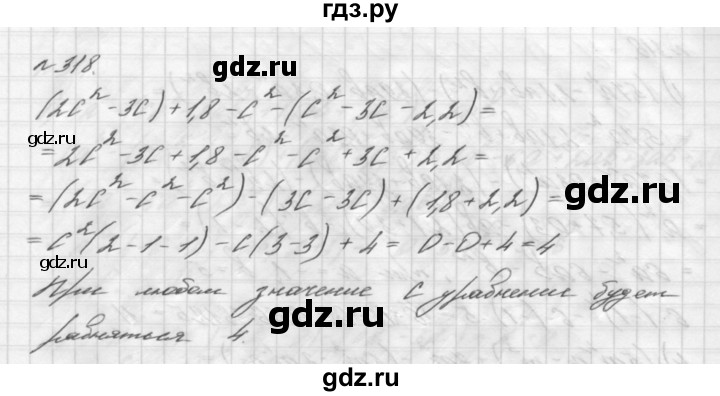 гдз.ру
№318.
gdz.ru
(2c² - 3c) + 1,8 - c² - (c² - 3c - 2,2) =
gdz.ru
= 2c² - 3c + 1,8 - c² - c² + 3c + 2,2 =
= (2c² - c² - c²) - (3c - 3c) + (1,8 + 2,2) =
gdz.ru
= c²(2 - 1 - 1) - c(3 - 3) + 4 = 0 - 0 + 4 = 4
gdz.ru
При любом значение c уравнение будет
gdz.ru
равняться 4.
gdz.ru